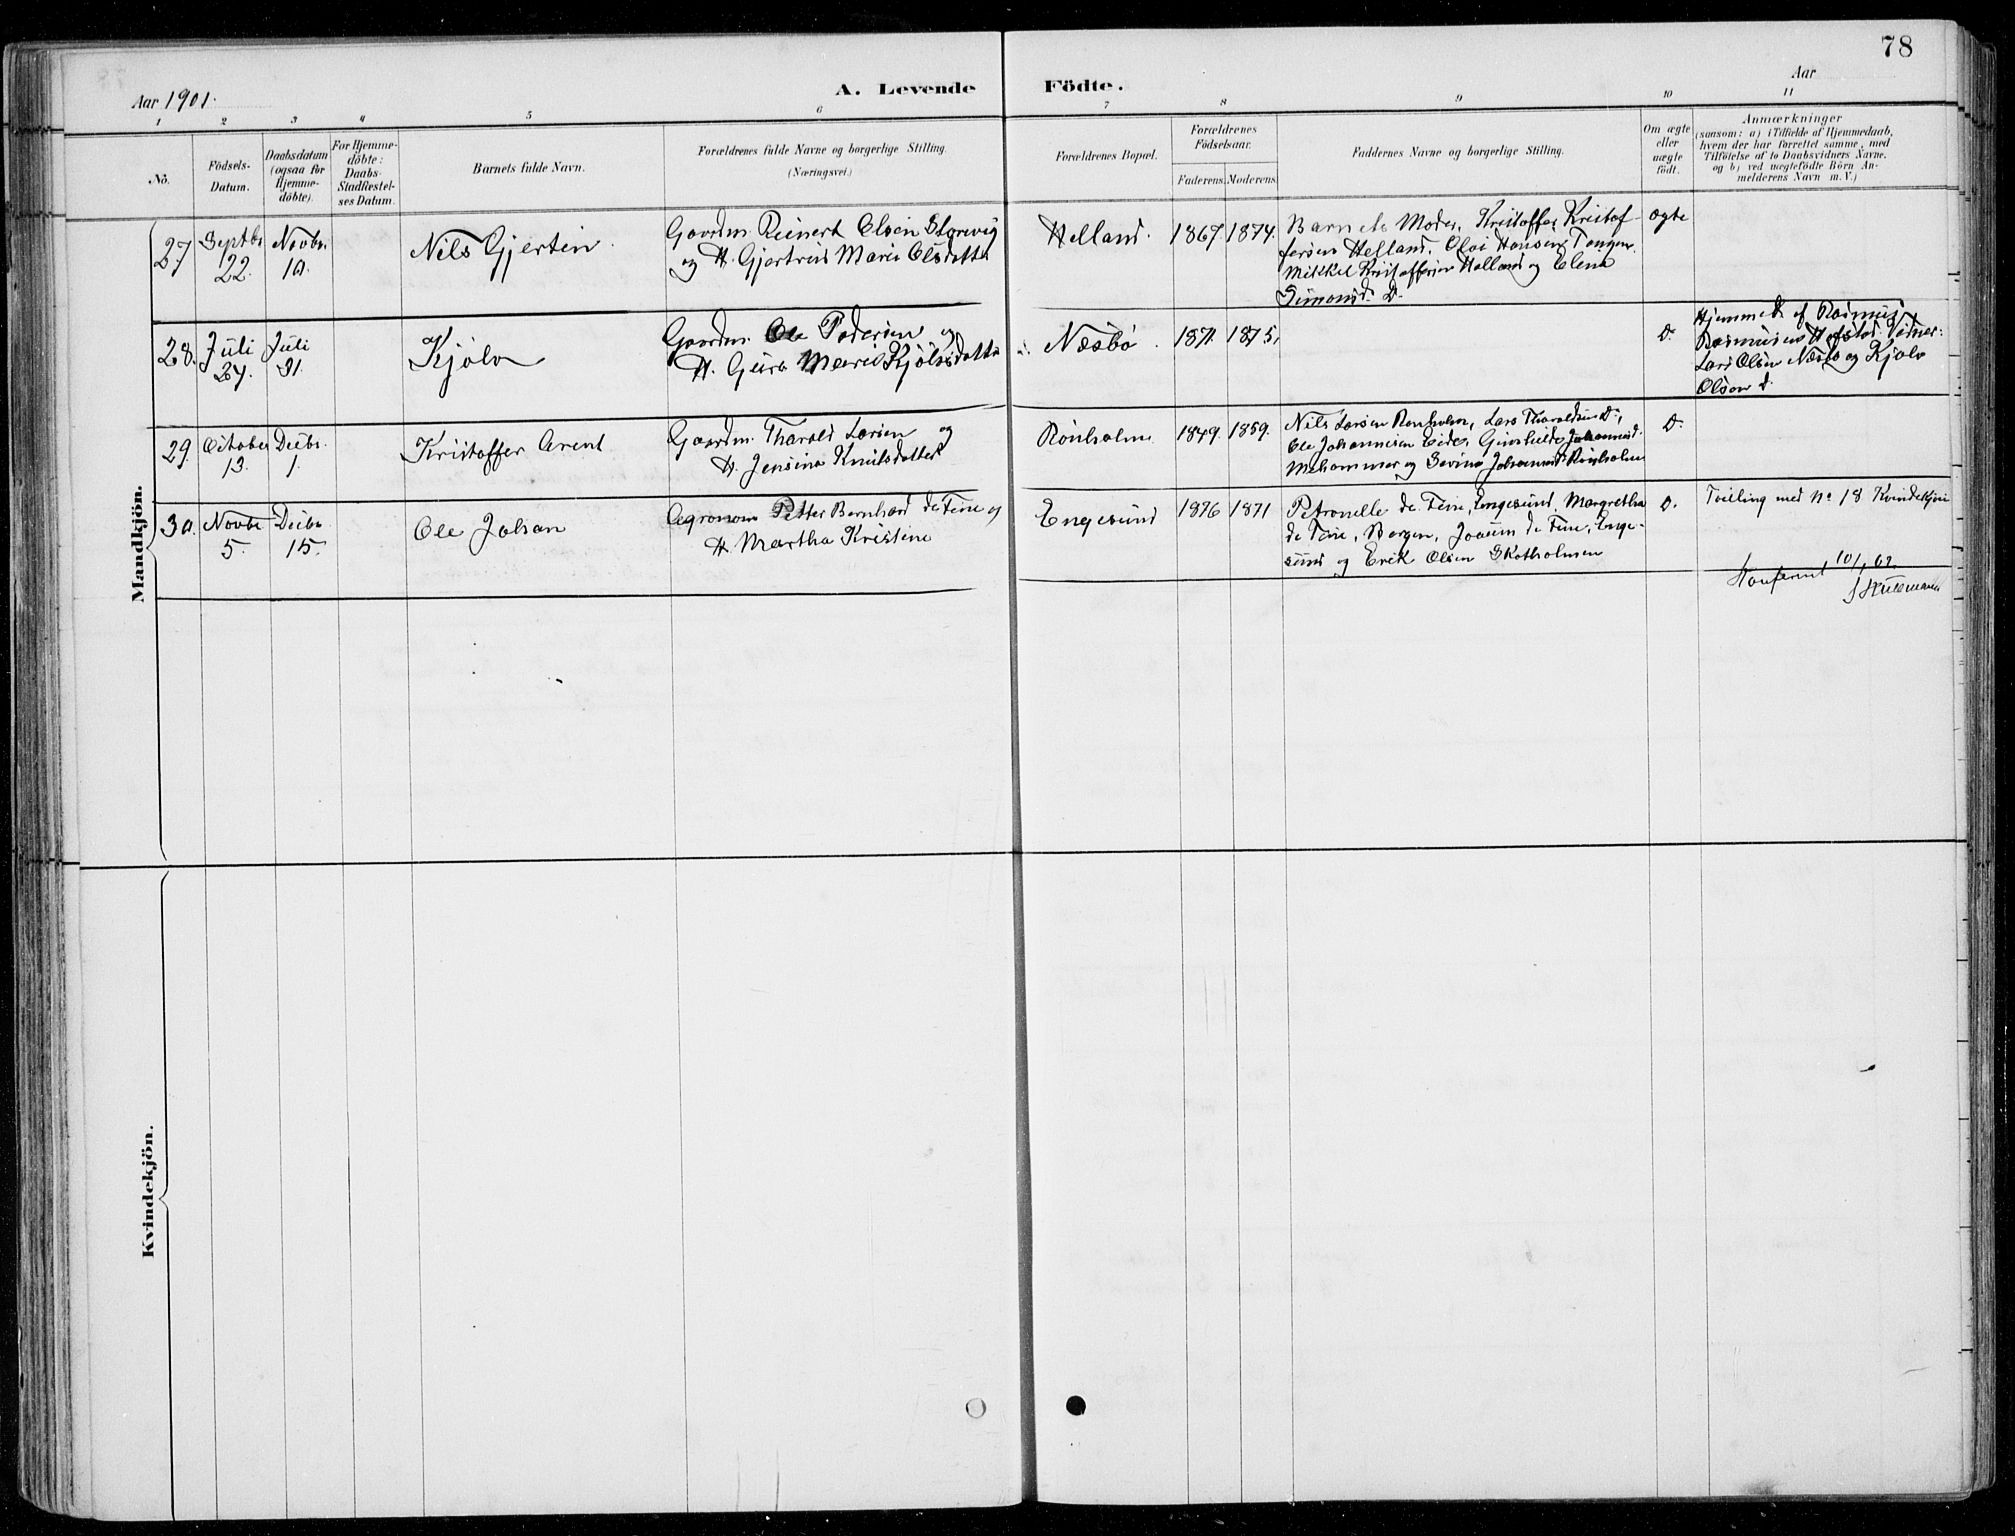 78
Aar 1901.
A. Levende Födte.
Aar
1 2 3 4 5 6 7 8 9 10 11
No.
Födsels-
Datum.
Daabsdatum
(ogsaa for
Hjemme-
döbte).
For Hjemme-
döbte:
Daabs-
Stadfæstel-
ses Datum.
Barnets fulde Navn.
Forældrenes fulde Navne og borgerlige Stilling.
(Næringsvei.)
Forældrenes Bopæl.
Forældrenes
Födselsaar.
Faderens. Moderens.
Faddernes Navne og borgerlige Stilling.
Om ægte
eller
uægte
födt.
Anmærkninger
(saasom: a) i Tilfælde af Hjemmedaab,
hvem der har forrettet samme, med
Tilföielse af to Daabsvidners Navne,
og b) ved uægtefödte Börn An-
melderens Navn m. V.)
Mandkjön.
27
Septbr
22.
Novbr.
10.
Nils Gjertin.
Gaardm. Reinert Olsen Storevig
og H. Gjertrud Marie Olsdatter
Helland.
1867. 1874.
Barnets Moder, Kristoffer Kristof
fersen Helland, Olai Hansen Tangen
Mikkel Kristoffersen Helland og Elena
Simonsd. D.
ægte
28.
Juli
27.
Juli
31.
Kjölv
Gaardm. Ole Pedersen og
H. Guro Marie Kjölvsdatter
Næsbö.
1871. 1875.
D.
Hjemmed. af Rasmus
Rasmussen Hofstad. Vidner:
Lars Olsen Næsbö og Kjölv
Olsen d.
29.
October
13.
Decbr.
1.
Kristoffer Arent
Gaardm. Tharald Larsen og
H. Jensine Knutsdatter
Rönholm
1849. 1859.
Nils Larsen Rönholm, Lars Tharaldsen D.,
Ole Johannesen Eide, Gunhilde Johannesd.
Mehammer og Sevine Johannesd. Rönholm
D.
30.
Novbr
5.
Decbr
15.
Ole Johan
Agronom Petter Bernhard de Fine og
H. Martha Kristine
Engesund
1876 1871
Petronelle de Fine, Engesund, Margretha
de Fine, Bergen, Joacum de Fine, Enge-
sund og Erik Olsen Skotholmen
D.
Tvilling med No 18 Kvindekjön
Konferert 10/1 62.
Kvindekjön.